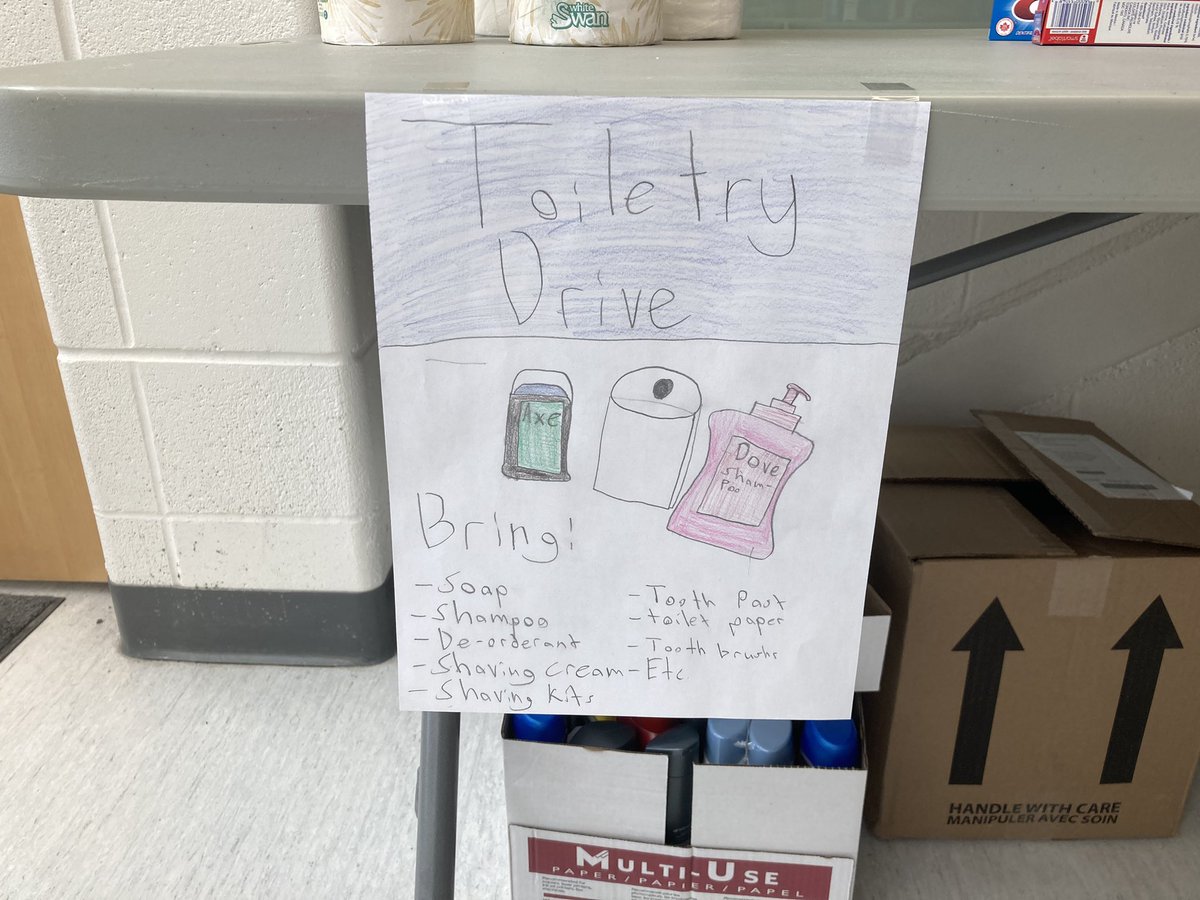 white
Swan
Toiletry
Drive
Axe
Dove
Sham-
Poo
Bring!
- Soap
- Shampoo
- De-orderant
- Shaving cream
- Shaving kits
- Tooth Past
- toilet paper
- Tooth brushs
- Etc.
HANDLE WITH CARE
MANIPULER AVEC SOIN
MULTI-USE
PAPER/PAPIER/PAPEL